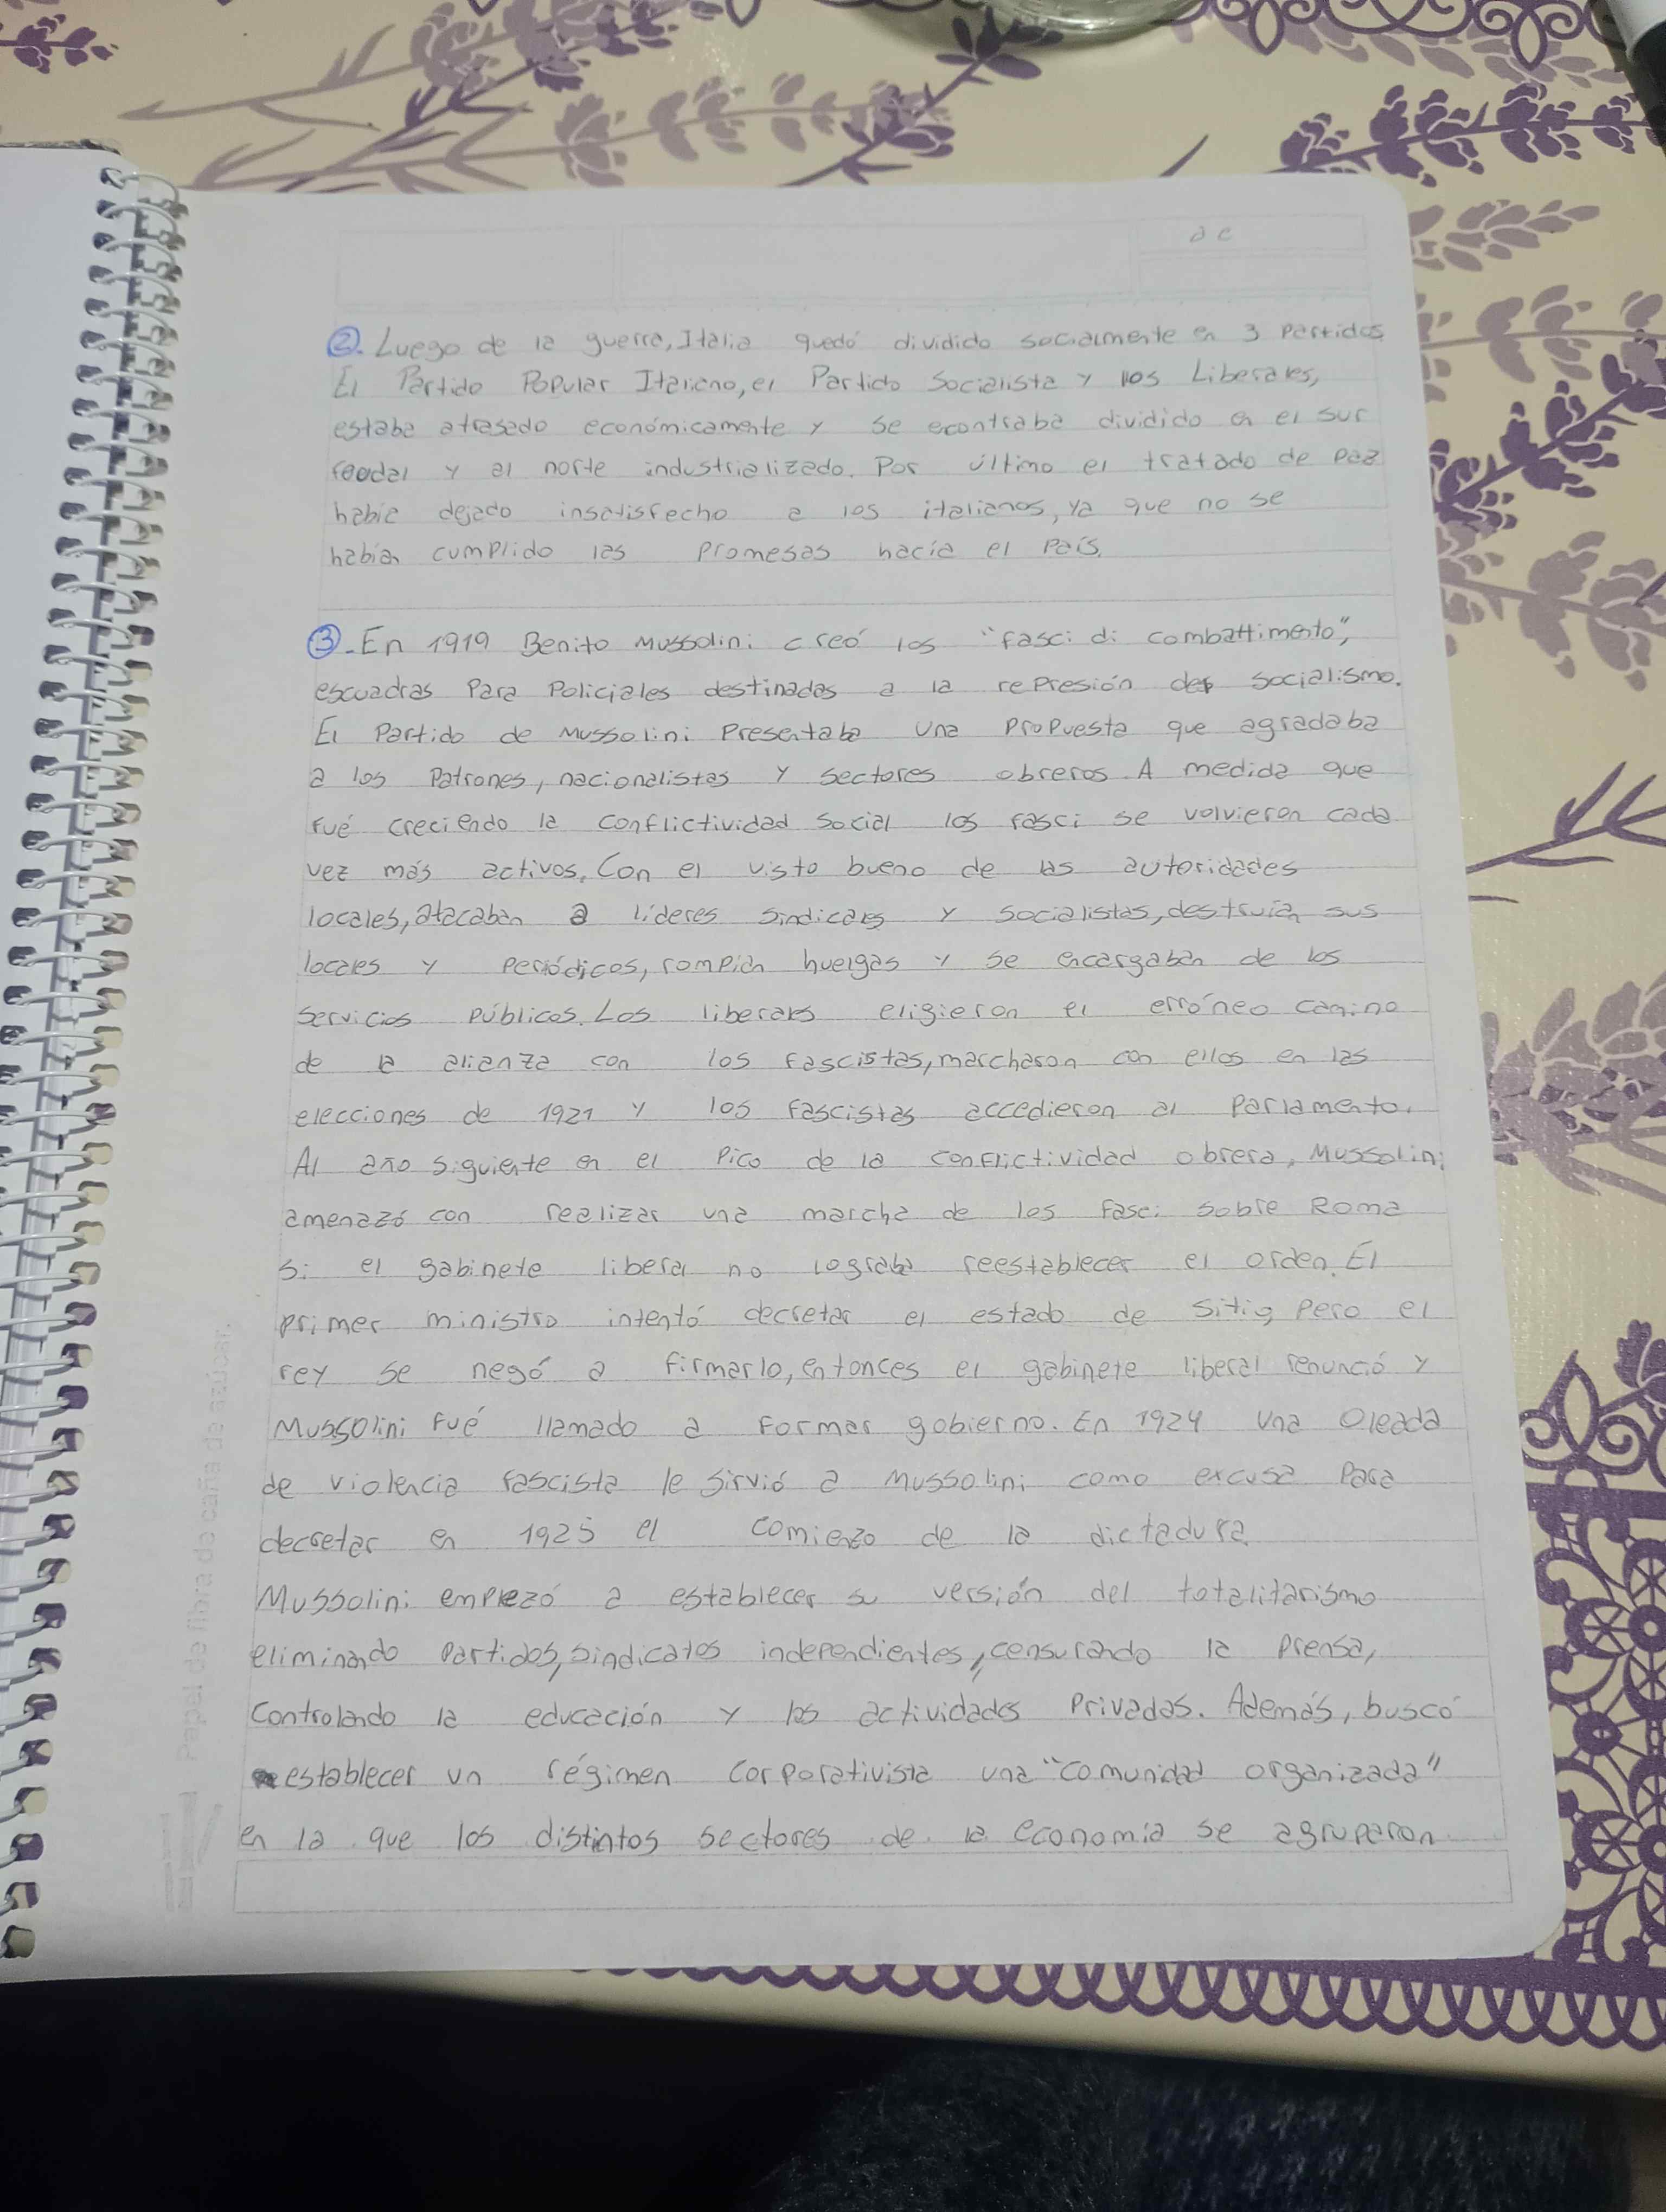 ②. Luego de la guerra, Italia quedó dividido socialmente en 3 partidos
El Partido Popular Italiano, el Partido Socialista y los Liberales,
estaba atrasado económicamente y se econtraba dividido en el sur
feodal y al norte industrializado. Por último el tratado de paz
había dejado insatisfecho a los italianos, ya que no se
habían cumplido las promesas hacía el país.
③.-En 1919 Benito Mussolini creó los "fasci di combattimento",
escuadras para policiales destinadas a la represión del socialismo.
El Partido de Mussolini presentaba una propuesta que agradaba
a los patrones, nacionalistas y sectores obreros. A medida que
fué creciendo la conflictividad social los fasci se volvieron cada
vez más activos. Con el visto bueno de las autoridades
locales, atacaban a líderes sindicales y socialistas, destruían sus
locales y periódicos, rompían huelgas y se encargaban de los
servicios públicos. Los liberales eligieron el erróneo camino
de la alianza con los fascistas, marcharon con ellos en las
elecciones de 1921 y los fascistas accedieron al parlamento.
Al año siguiente en el pico de la conflictividad obrera, Mussolini
amenazó con realizar una marcha de los fasci sobre Roma
si el gabinete liberal no lograba reestablecer el orden. El
primer ministro intentó decretar el estado de sitio, pero el
rey se negó a firmarlo, entonces el gabinete liberal renunció y
Mussolini fué llamado a formar gobierno. En 1924 una oleada
de violencia fascista le sirvió a Mussolini como excusa para
decretar en 1925 el comienzo de la dictadura.
Mussolini empezó a establecer su versión del totalitarismo
eliminando partidos, sindicatos independientes, censurando la prensa,
controlando la educación y las actividades privadas. Además, buscó
establecer un régimen corporativista una "comunidad organizada"
en la que los distintos sectores de la economía se agruparon
Papel de fibra de caña de azúcar.